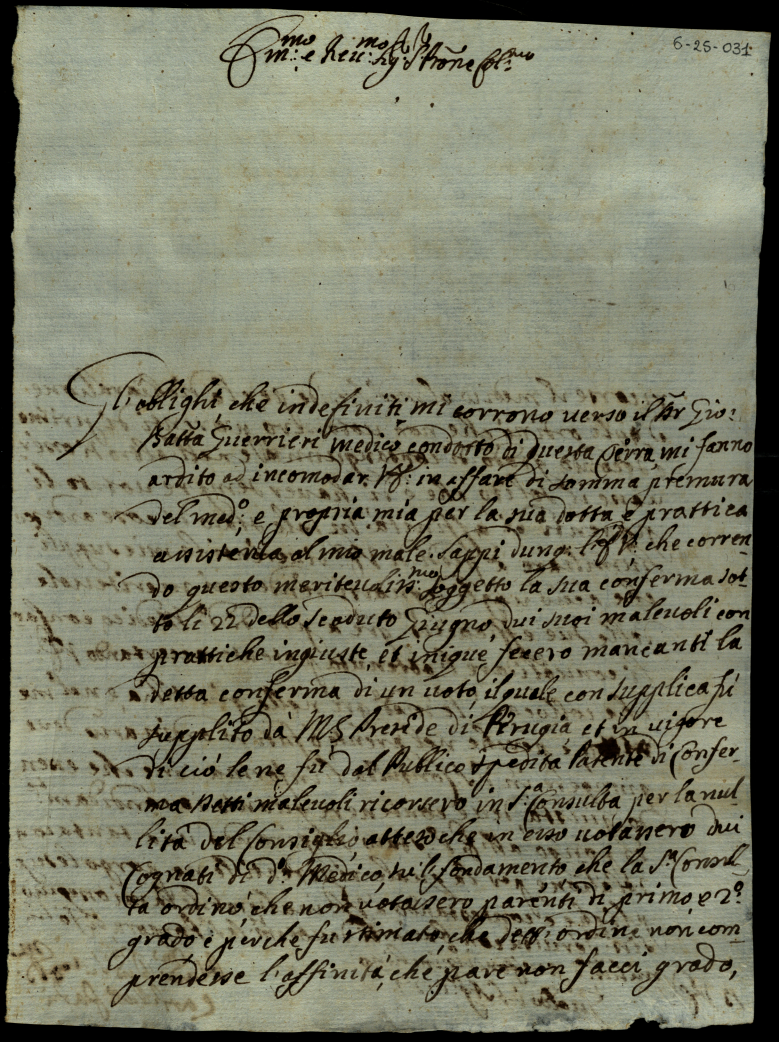 6-25-031
Em:mo e Reu:mo Sig:r P'rone Col:mo
Gl'oblighi che indefiniti mi corrono verso il Sr Gio:
Batta Guerrieri medico condotto di questa Terra, mi fanno
ardito ad incomodar V.E. in affare di somma premura
del med:o, e propria mia per la sua dotta e prattica
assistenza al mio male. Sappi dunq: l'E.V. che corren-
do questo meriteuoliss:mo soggetto la sua conferma sot-
to li 22 dello scaduto Giugno, dui suoi maleuoli con
prattiche ingiuste, et inique fecero mancanti la
detta conferma di un uoto, il quale con supplica fù
supplito dà M.S. Preside di Perugia et in uigore
di ciò le ne fù dal Publico spedita Patente di Confer-
ma Detti maleuoli ricorsero in S.a Consulta per la nul-
lità del Consiglio atteso che in esso uotassero dui
Cognati di d.o Medico, sù'l fondamento che la S.a Consul-
ta ordinò che non uotassero parenti di primo e 2.o
grado è perche fù stimato, che dett'ordine non com-
prendesse l'affinità, che pare non facci grado,